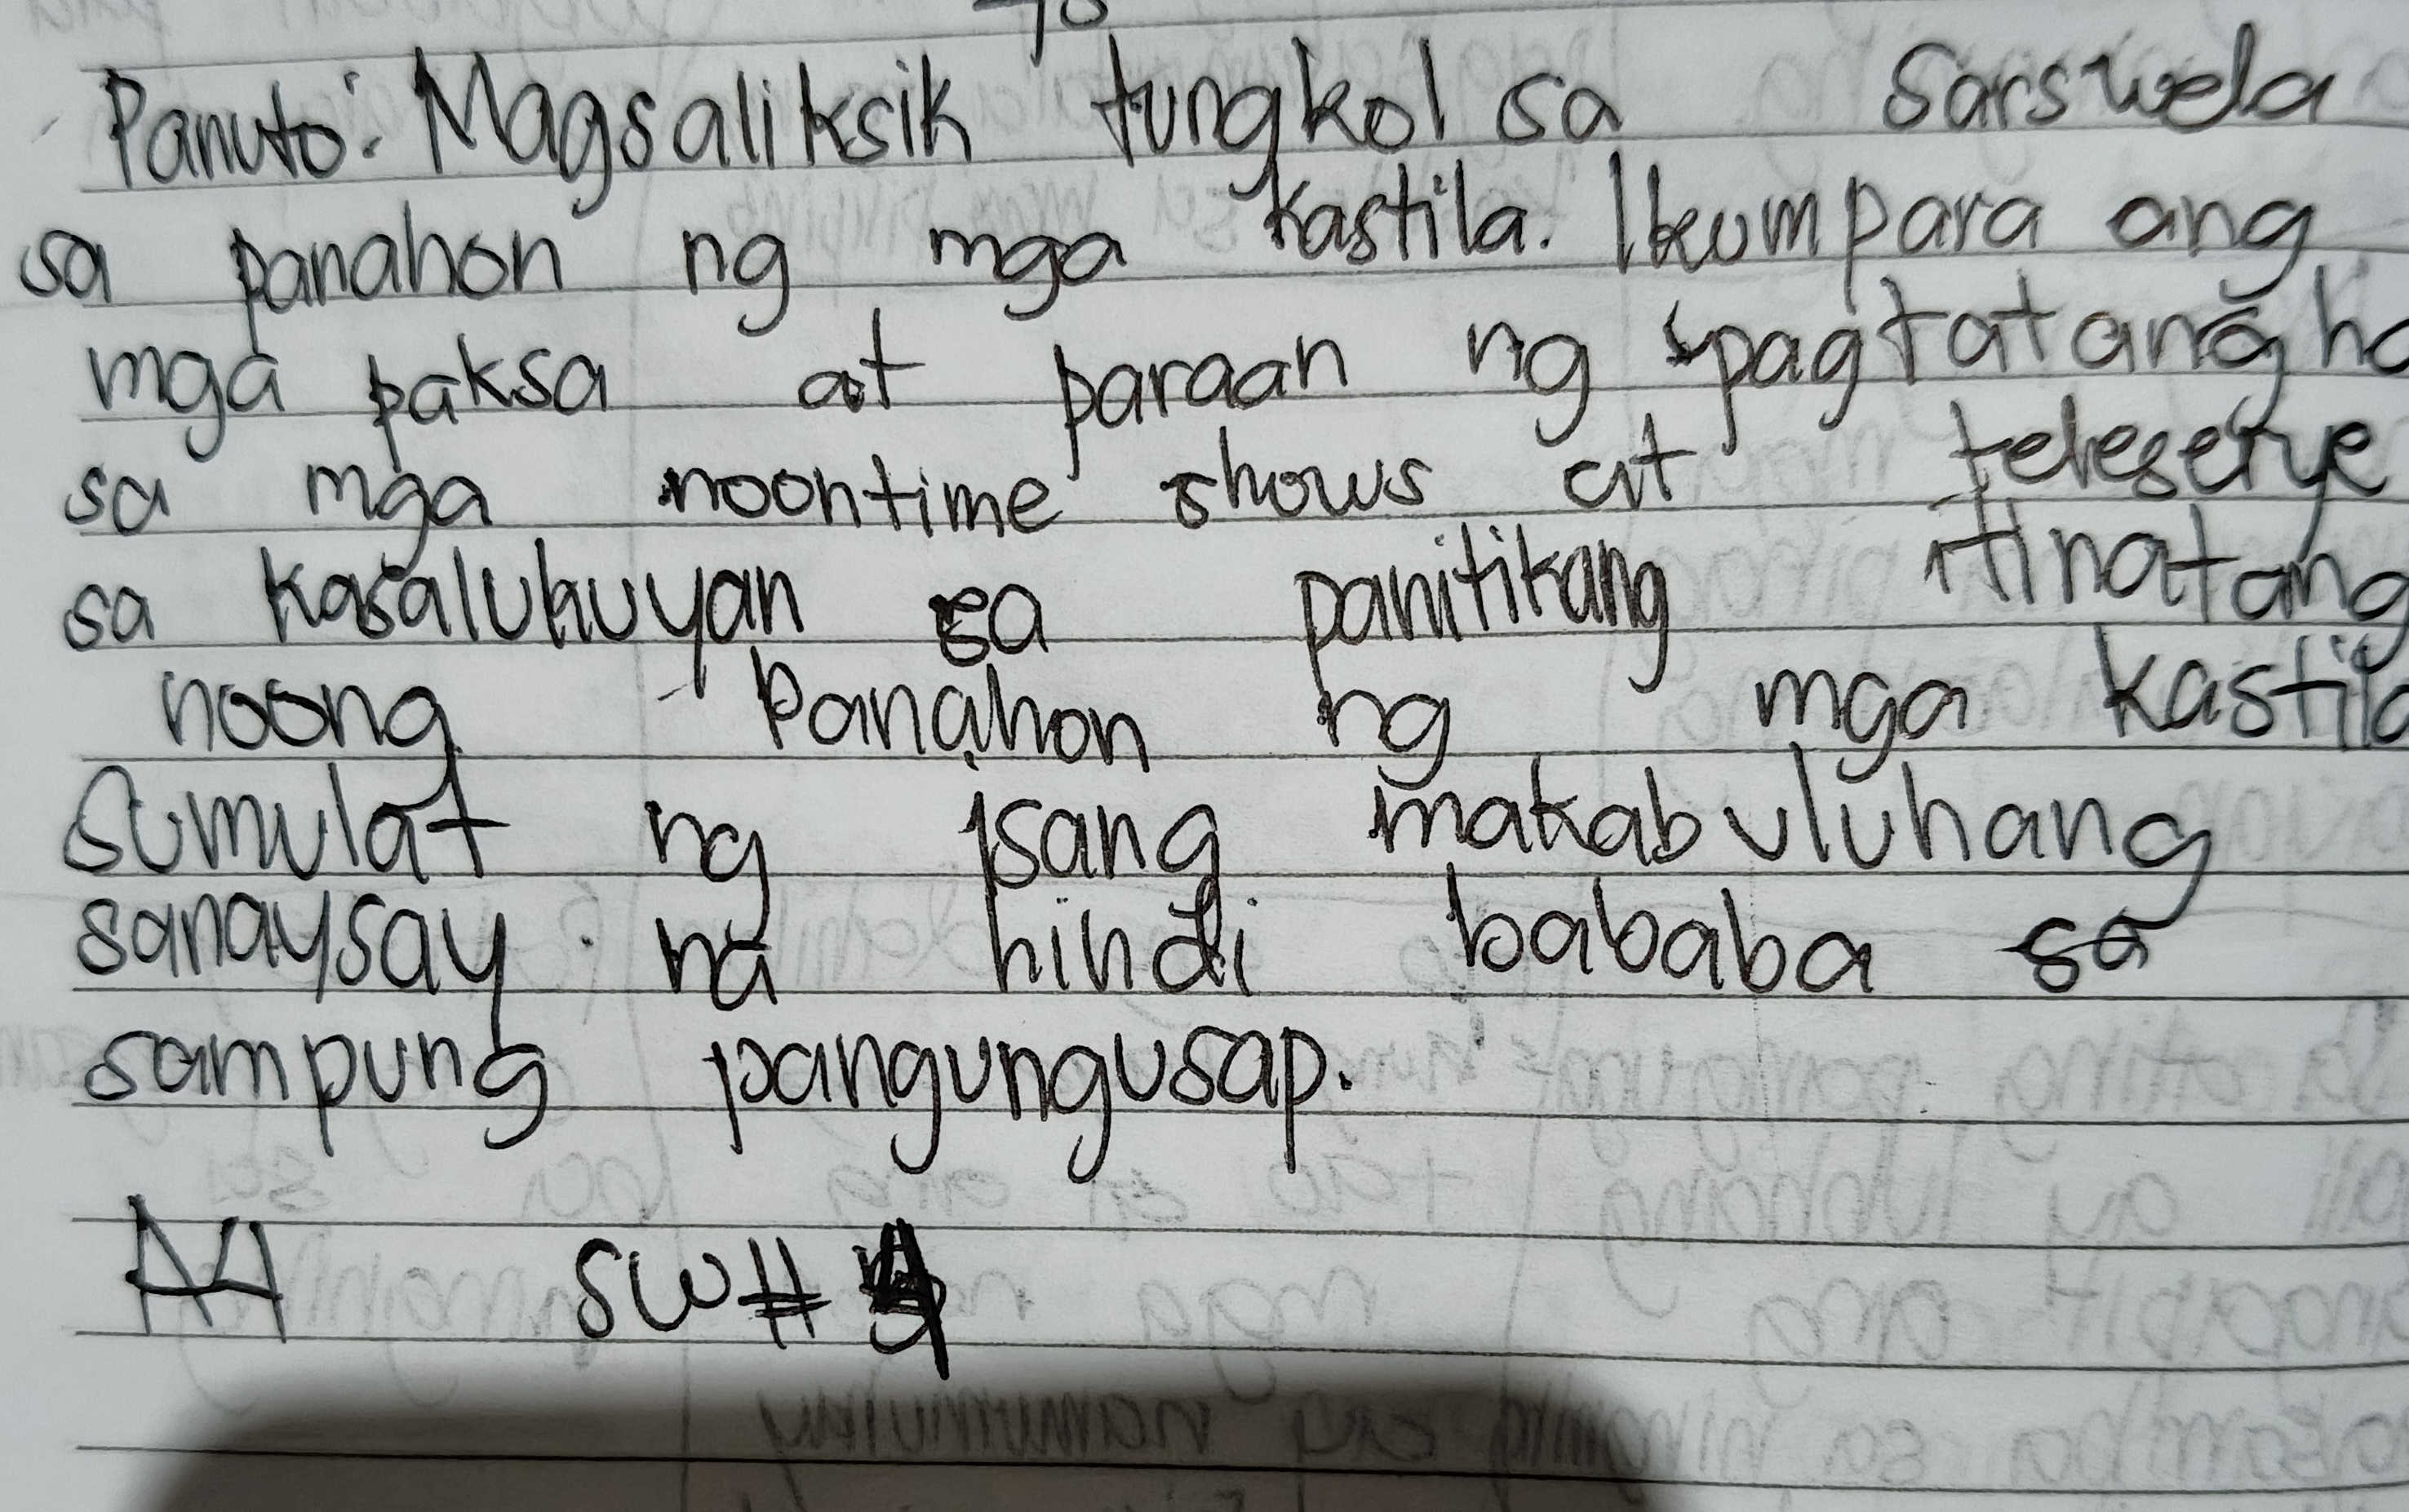 Panuto: Magsaliksik tungkol sa Sarswela
sa panahon ng mga kastila. Ikumpara ang
mga paksa at paraan ng pagtatangha
sa mga noontime shows at teleserye
sa kasalukuyan sa panitikang itinatang
noong Panahon ng mga kastila
sumulat ng isang makabuluhang
sanaysay na hindi bababa sa
sampung pangungusap.
A4 SW#